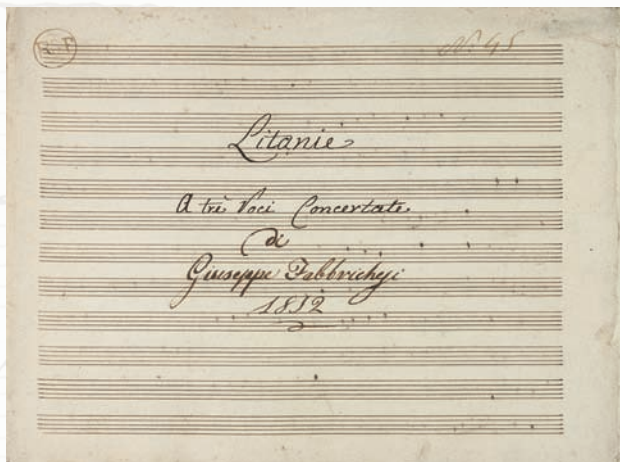 Nº 45
Litanie
A trè Voci Concertate
di
Giuseppe Fabbrichesi
1812